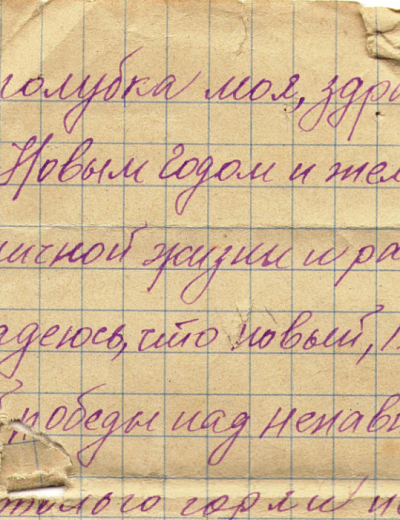 голубка моя, здра
Новым Годом и жел
ичной жизни и ра
адеюсь, что новый, 1
победы над ненави